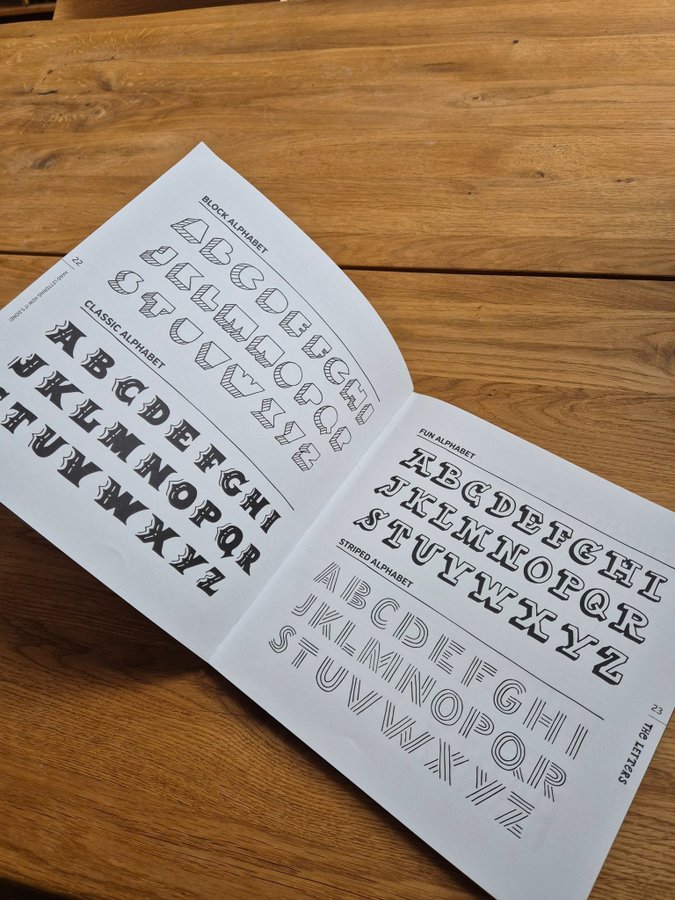 22 | HAND LETTERING (HOW IT'S DONE)
BLOCK ALPHABET
ABCDEFGHI
JKLMNOPQR
STUVWXYZ
CLASSIC ALPHABET
ABCDEFGHI
JKLMNOPQR
STUVWXYZ
FUN ALPHABET
ABCDEFGHI
JKLMNOPQR
STUVWXYZ
STRIPED ALPHABET
ABCDEFGHI
JKLMNOPQR
STUVWXYZ
23 | THE LETTERS